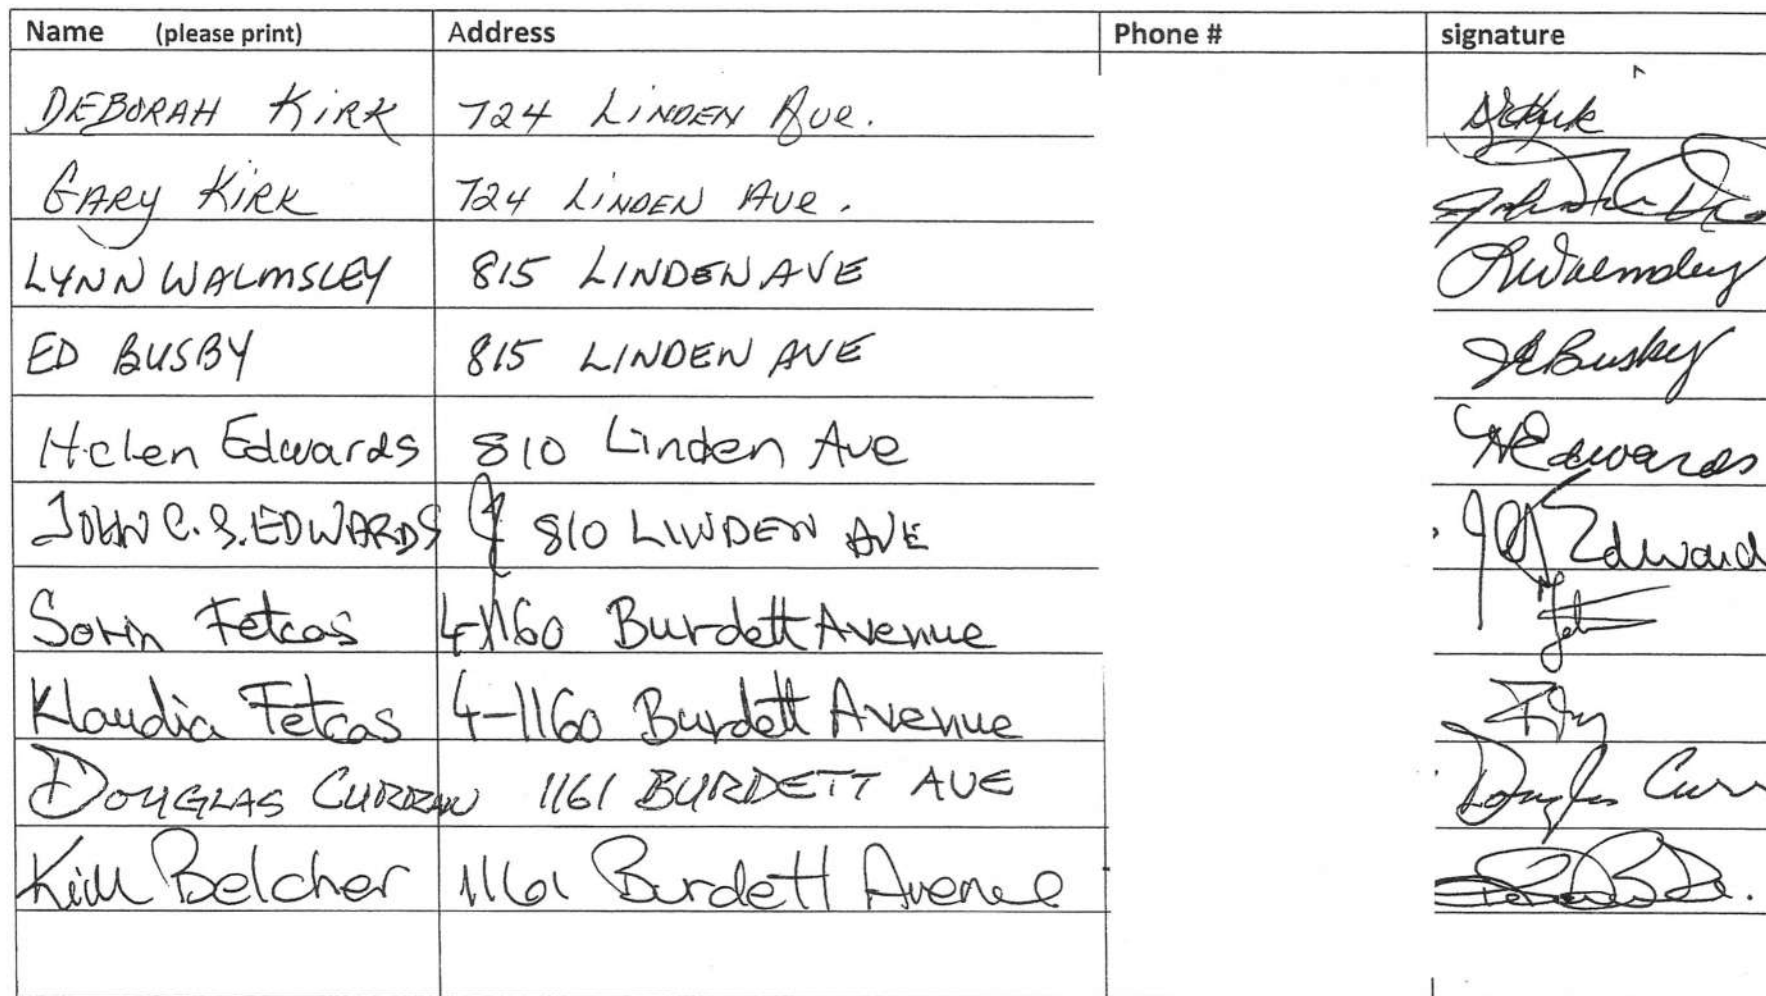 Name (please print) Address Phone # signature
DEBORAH KIRK 724 LINDEN AVE. DJKirk
GARY KIRK 724 LINDEN AVE.
LYNN WALMSLEY 815 LINDEN AVE LWalmsley
ED BUSBY 815 LINDEN AVE JEBusby
Helen Edwards 810 Linden Ave HEdwards
JOHN C.S. EDWARDS 810 LINDEN AVE Edward
Sorin Fetcas 4-1160 Burdett Avenue
Klaudia Fetcas 4-1160 Burdett Avenue
DOUGLAS CURRAN 1161 BURDETT AVE Douglas Curr
Kim Belcher 1161 Burdett Avenue